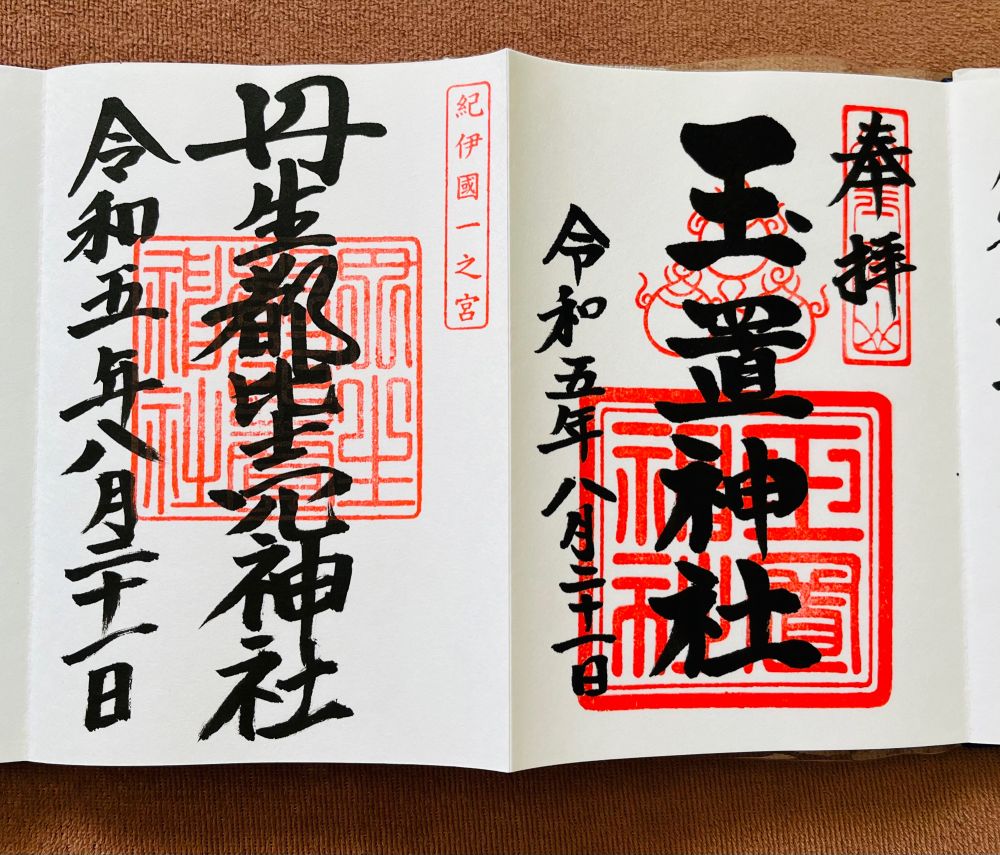 奉拝
玉置神社
令和五年八月二十一日
紀伊國一之宮
丹生都比売神社
令和五年八月二十一日